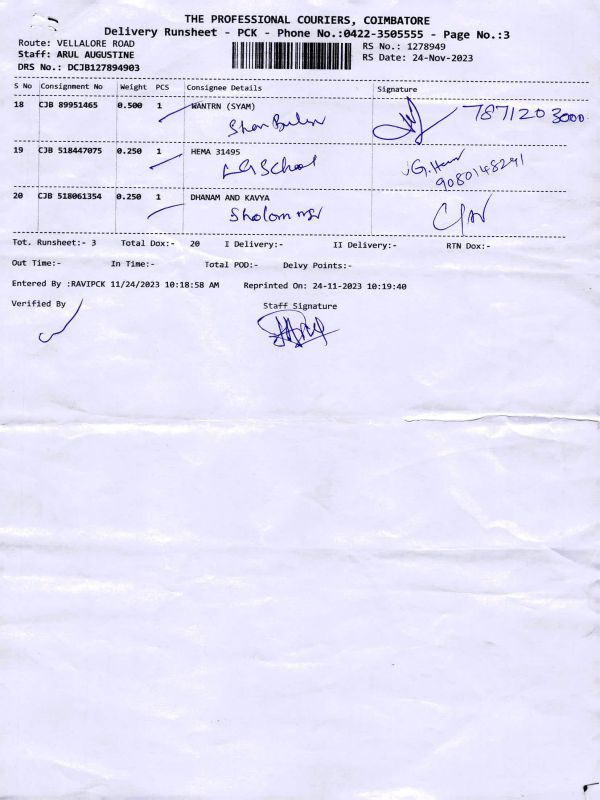 THE PROFESSIONAL COURIERS, COIMBATORE
Delivery Runsheet - PCK - Phone No.:0422-3505555 - Page No.:3
Route: VELLALORE ROAD RS No.: 1278949
Staff: ARUL AUGUSTINE RS Date: 24-Nov-2023
DRS No.: DCJB127894903
S No Consignment No Weight PCS Consignee Details Signature
18 CJB 89951465 0.500 1 WANTRN (SYAM) 7871203000
19 CJB 518447075 0.250 1 HEMA 31495
School 9080148291
20 CJB 518061354 0.250 1 DHANAM AND KAVYA
Tot. Runsheet:- 3 Total Dox:- 20 I Delivery:- II Delivery:- RTN Dox:-
Out Time:- In Time:- Total POD:- Delvy Points:-
Entered By :RAVIPCK 11/24/2023 10:18:58 AM Reprinted On: 24-11-2023 10:19:40
Verified By Staff Signature